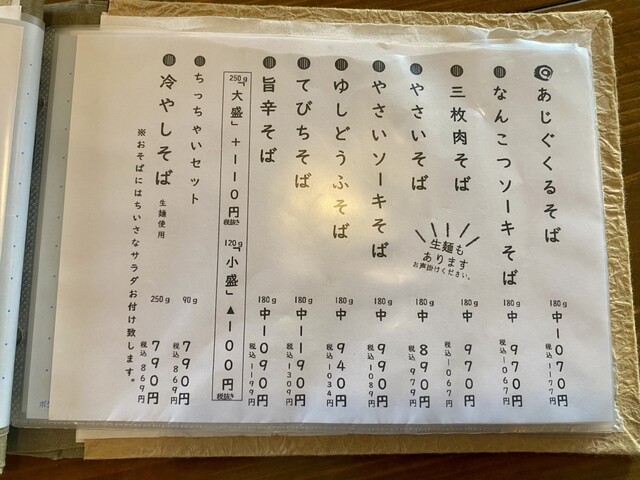 あじぐくるそば 180g 中 1070円 税込1177円
なんこつソーキそば 180g 中 970円 税込1067円
三枚肉そば 180g 中 970円 税込1067円
生麺も
あります
お声掛けください。
やさいそば 180g 中 890円 税込979円
やさいソーキそば 180g 中 990円 税込1089円
ゆしどうふそば 180g 中 940円 税込1034円
てびちそば 180g 中 1190円 税込1309円
旨辛そば 180g 中 1090円 税込1199円
250g「大盛」+110円 税抜き 120g「小盛」▲100円 税抜き
ちっちゃいセット 90g 790円 税込869円
冷やしそば 生麺使用 250g 790円 税込869円
※おそばにはちいさなサラダお付け致します。